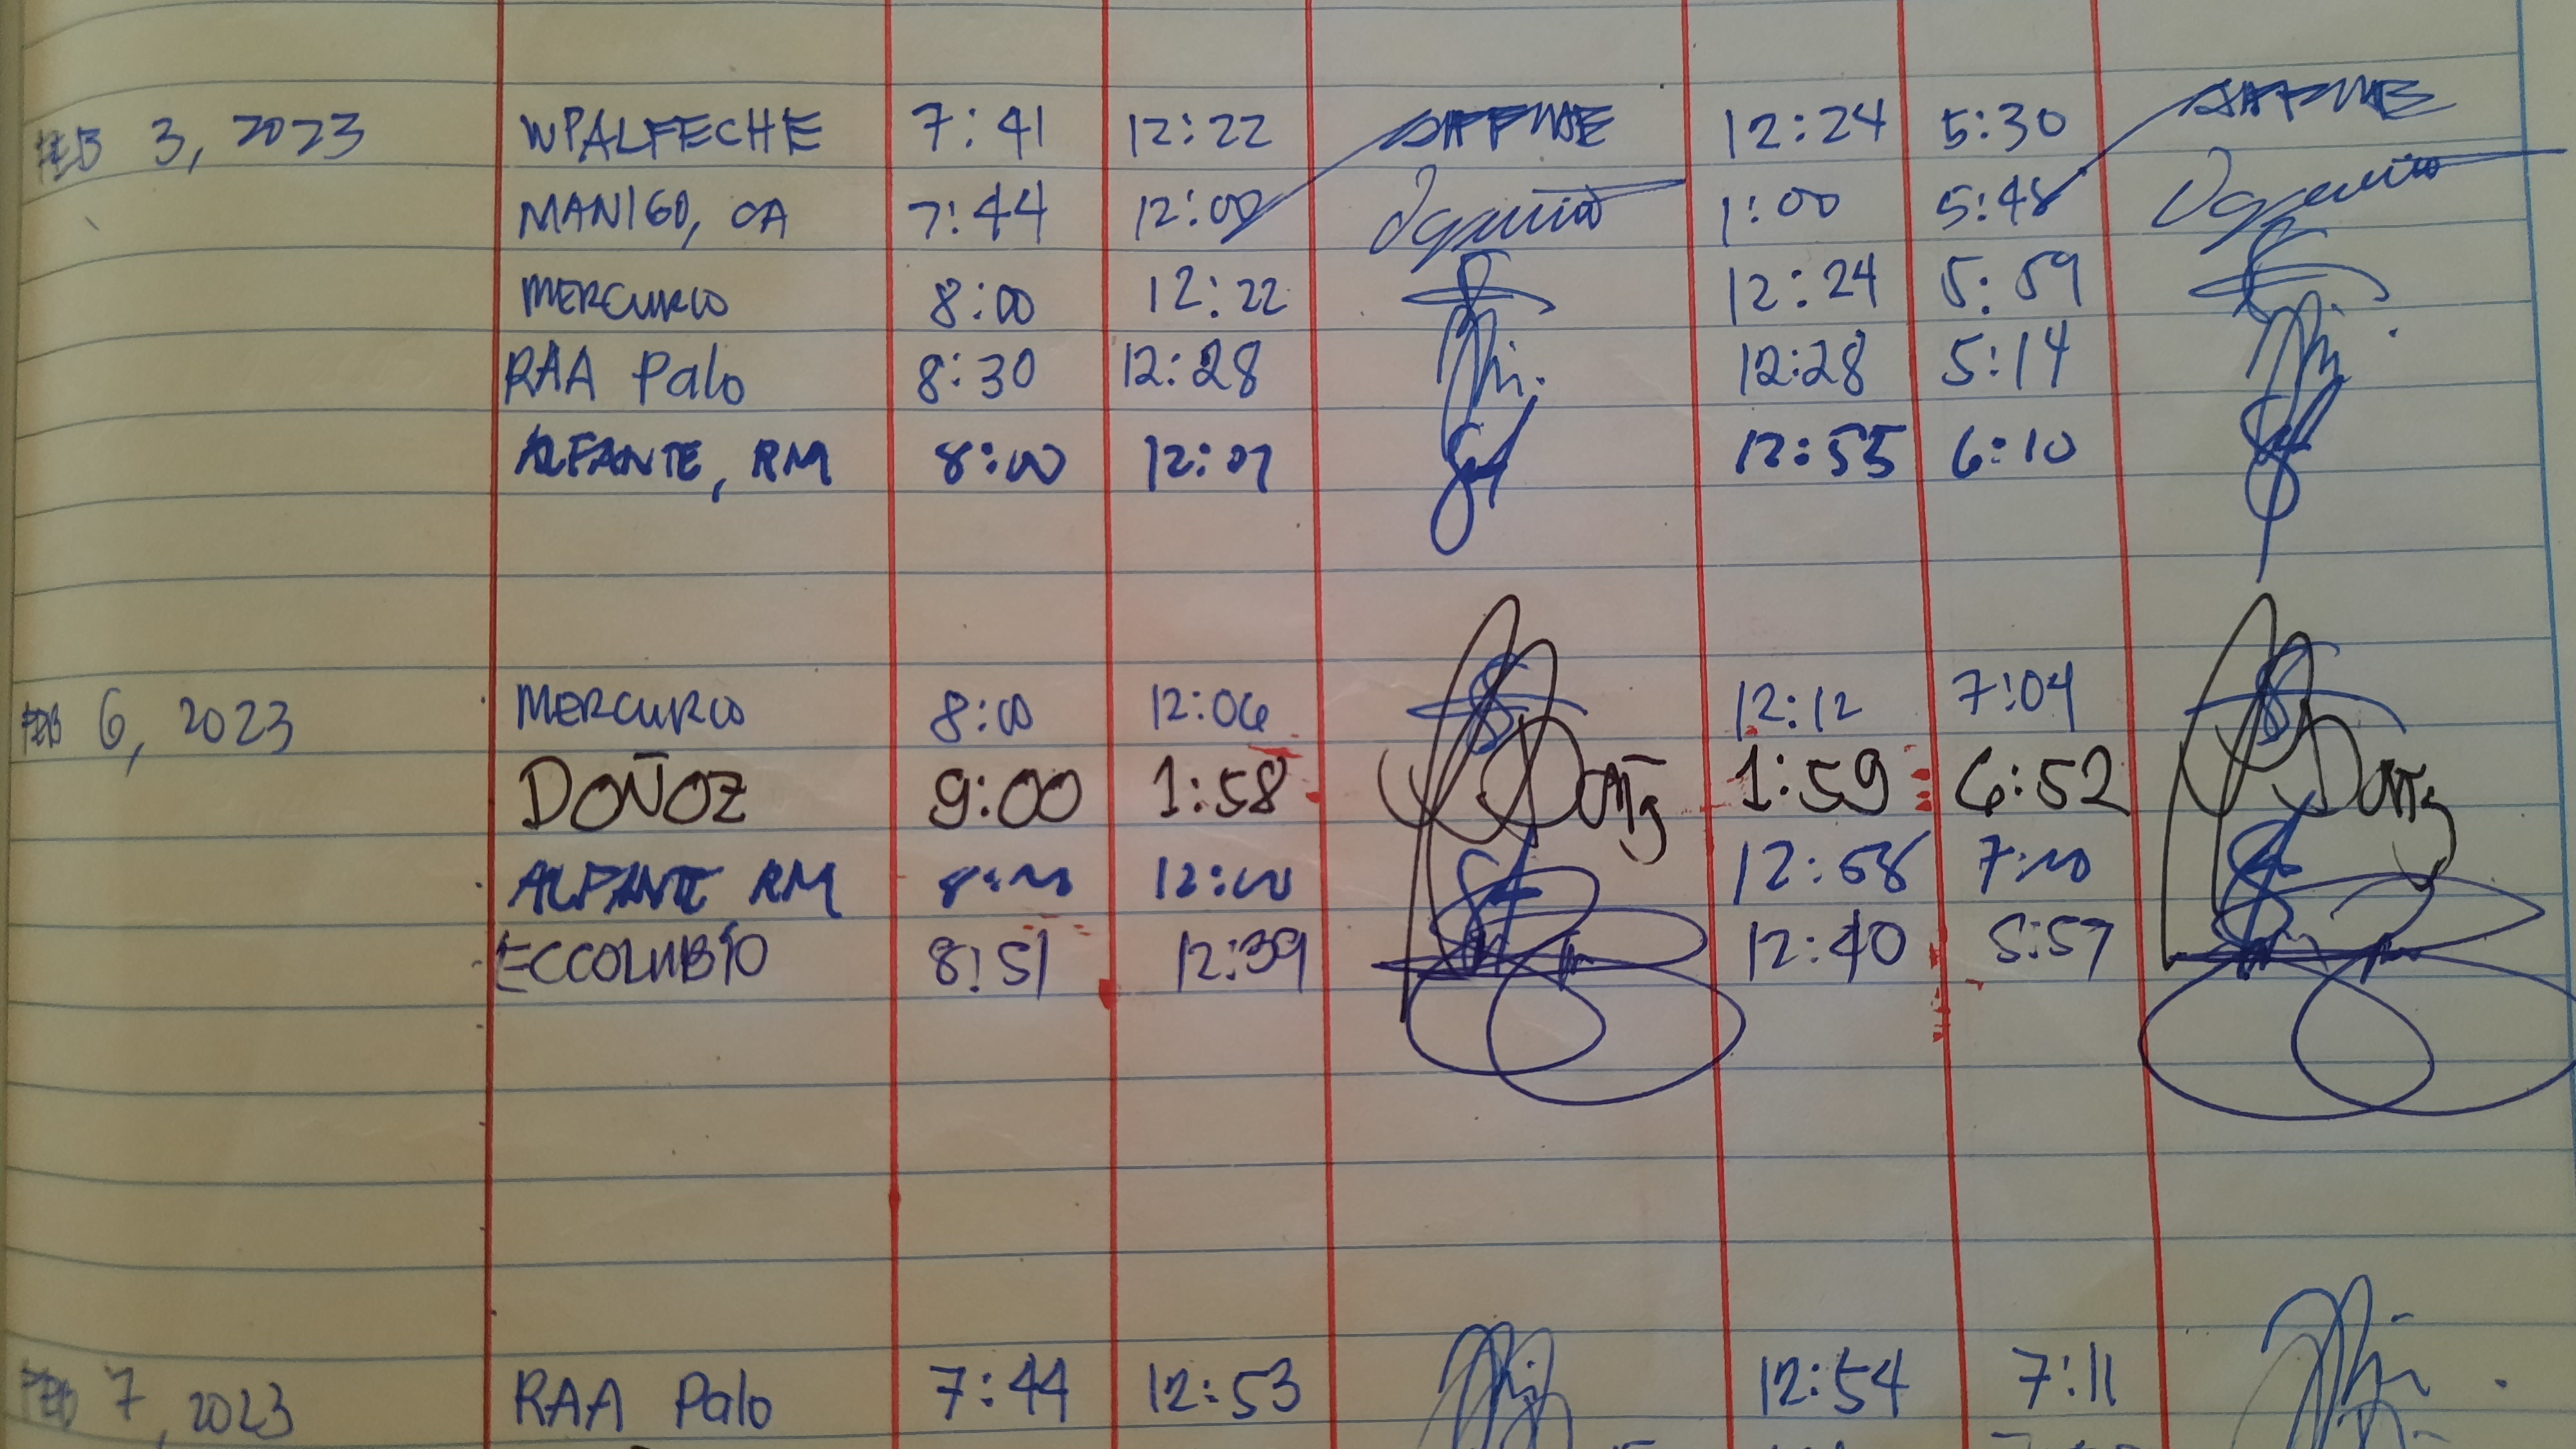 FEB 3, 2023 WPALFECHE 7:41 12:22 12:24 5:30
MANIGO, CA 7:44 12:00 1:00 5:48
MERCURIO 8:00 12:22 12:24 5:59
RAA Palo 8:30 12:28 12:28 5:14
ALFANTE, RM 8:00 12:07 12:55 6:10
FEB 6, 2023 MERCURIO 8:00 12:06 12:12 7:04
DOÑOZ 9:00 1:58 1:59 6:52
ALFANTE RM 8:00 12:00 12:58 7:10
ECCOLUBIO 8:51 12:39 12:40 5:57
FEB 7, 2023 RAA Palo 7:44 12:53 12:54 7:11